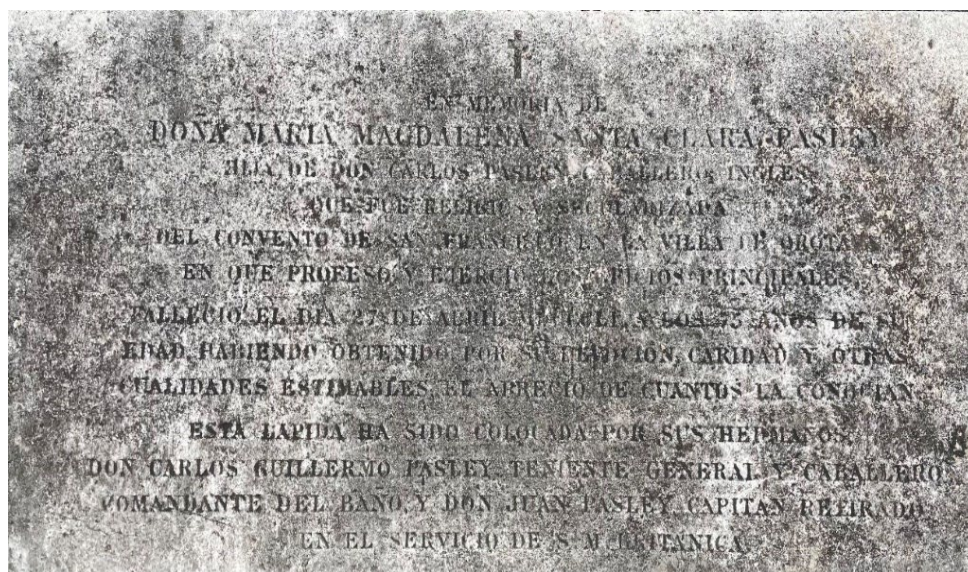 EN MEMORIA DE
DOÑA MARIA MAGDALENA SANTA CLARA PASLEY
HIJA DE DON CARLOS PASLEY, CABALLERO INGLES,
QUE FUE RELIGIOSA SECULARIZADA
DEL CONVENTO DE SAN FRANCISCO EN LA VILLA DE OROTAVA
EN QUE PROFESO Y EJERCIO LOS OFICIOS PRINCIPALES.
FALLECIO EL DIA 27 DE ABRIL A LOS 75 AÑOS DE SU
EDAD, HABIENDO OBTENIDO POR SU DEVOCION, CARIDAD Y OTRAS
CUALIDADES ESTIMABLES EL APRECIO DE CUANTOS LA CONOCIAN
ESTA LAPIDA HA SIDO COLOCADA POR SUS HERMANOS
DON CARLOS GUILLERMO PASLEY, TENIENTE GENERAL Y CABALLERO
COMANDANTE DEL BAÑO, Y DON JUAN PASLEY, CAPITAN RETIRADO
EN EL SERVICIO DE S. M. BRITANICA